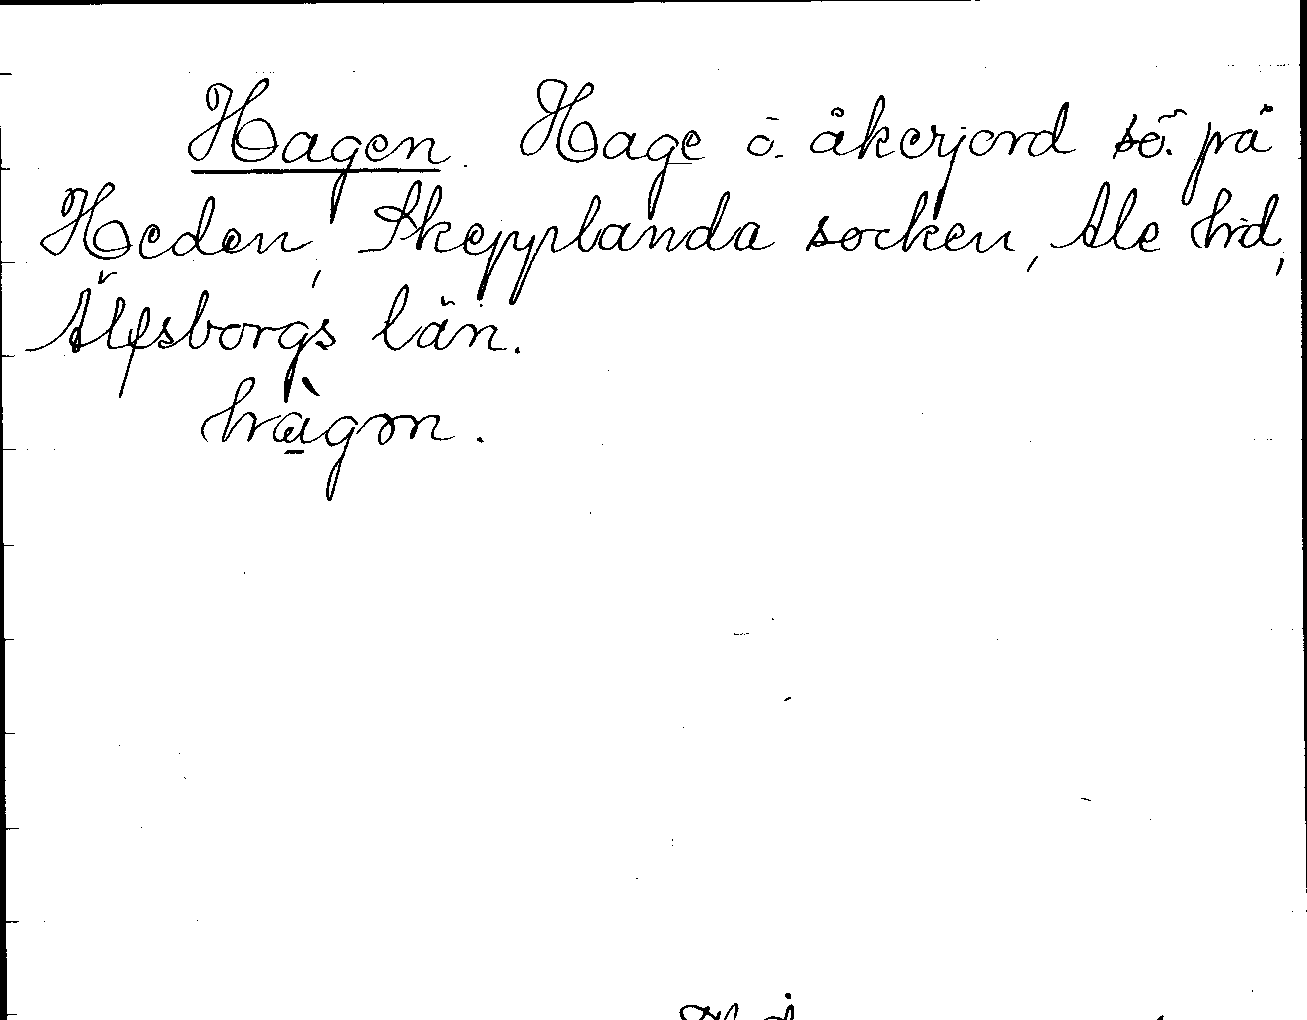 Hagen. Hage o. åkerjord sö. på
Heden, Skepplanda socken, Ale hrd,
Älfsborgs län.